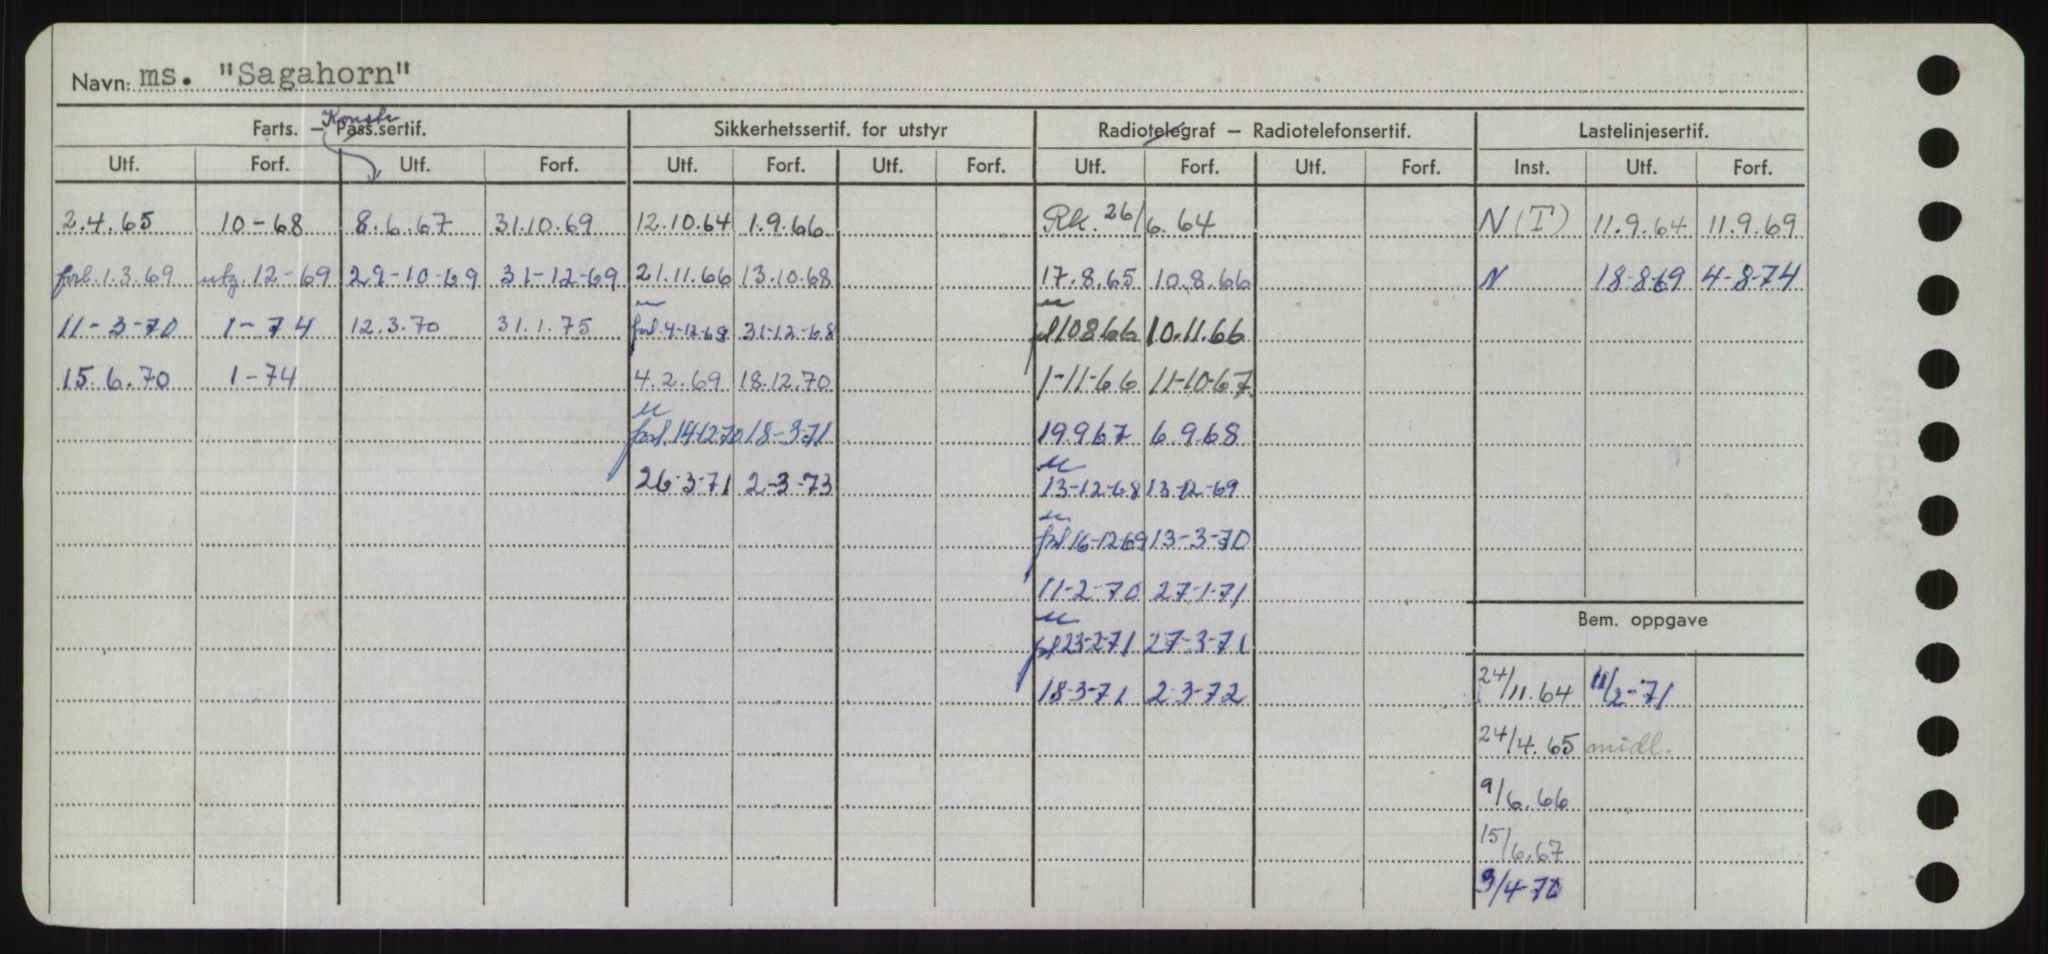 Navn: ms. "Sagahorn"
Konstr
Farts. – Pass.sertif. Sikkerhetssertif. for utstyr Radiotelegraf – Radiotelefonsertif. Lastelinjesertif.
Utf. Forf. Utf. Forf. Utf. Forf. Utf. Forf. Utf. Forf. Utf. Forf. Inst. Utf. Forf.
2.4.65 10-68 8.6.67 31.10.69 12.10.64 1.9.66 Rk. 26/6.64 N (I) 11.9.64 11.9.69
forl. 1.3.69 utg. 12-69 29-10-69 31-12-69 21.11.66 13.10.68 17.8.65 10.8.66 N 18-8-69 4-8-74
11-3-70 1-74 12.3.70 31.1.75 forl. 4-12-68 31-12-68 10866 10.11.66
15.6.70 1-74 4.2.69 18.12.70 1-11-66 11-10-67
forl. 14-12-70 18-3-71 19.967 6.9.68
26-3-71 2-3-73 13-12-68 13-12-69
forl 16-12-69 13-3-70
11-2-70 27-1-71
Bem. oppgave
forl 23-2-71 27-3-71
18-3-71 2-3-72 24/11.64 11/2-71
24/4.65 midl.
9/6.66
15/6.67
3/4-70